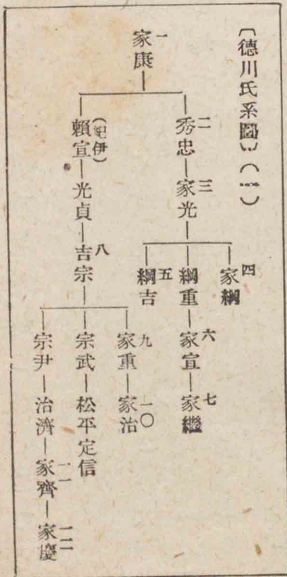 〔德川氏系圖〕(二)
一
家康
二
秀忠
三
家光
四
家綱
綱重
五
綱吉
六
家宣
七
家繼
(紀伊)
賴宣
光貞
八
吉宗
九
家重
一〇
家治
宗武
松平定信
宗尹
治濟
一一
家齊
一二
家慶